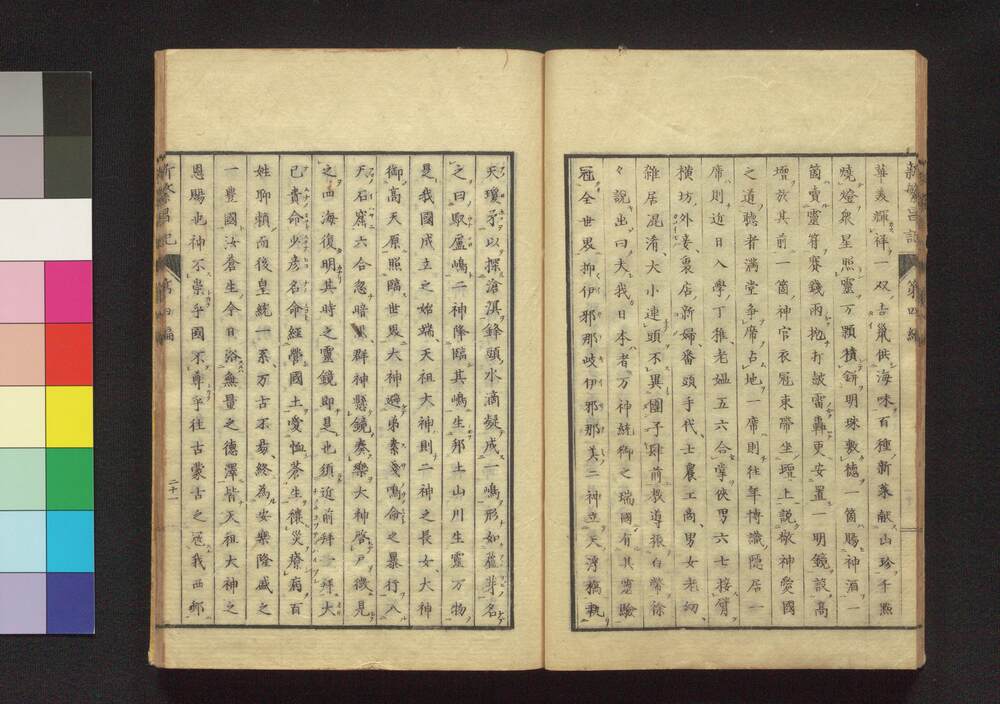 新繁昌記 第四編
華表輝祥一双古巢供海味百種新菜献山珍千點
燒燈衆星照靈万顆積餅明珠數德一箇賜神酒一
箇賣靈符賽錢雨抛打皷雷轟更安置一明鏡設高
壇於其前一箇神官衣冠束帶坐壇上説敬神愛國
之道聽者滿堂爭席占地一席則往年博識隱居一
席則近日入學丁稚老媼五六合掌俠男六七接臂
横坊外妾裏店新婦番頭手代士農工商男女老幼
雜居混淆大小連頭不異團子肆前教導振白幣徐
々說出曰夫我日本者万神統御之瑞國有其靈驗
冠全世界抑伊邪那岐伊邪那美二神立天浮橋執
天瓊矛以探滄溟鋒頭水滴凝成一嶋形如蘆芽名
之曰馭廬嶋二神降臨其嶋生邦土山川生靈万物
是我國成立之始端天祖大神則二神之長女大神
御高天原照臨世界大神避弟素戔嗚命之暴行入
天石窟六合忽暗黑群神懸鏡奏樂大神啓戸微見
之四海復明其時之靈鏡即是也須近前拜一拜大
已貴命少彦名命經營國土愛恤蒼生禳災療病百
姓聊賴而後皇統一系万古不易終為安樂隆盛之
一豊國汝蒼生今日浴無量之德澤皆天祖大神之
恩賜也神不崇乎國不尊乎往古蒙古之寇我西鄙
新繁昌記 第四編
二十一